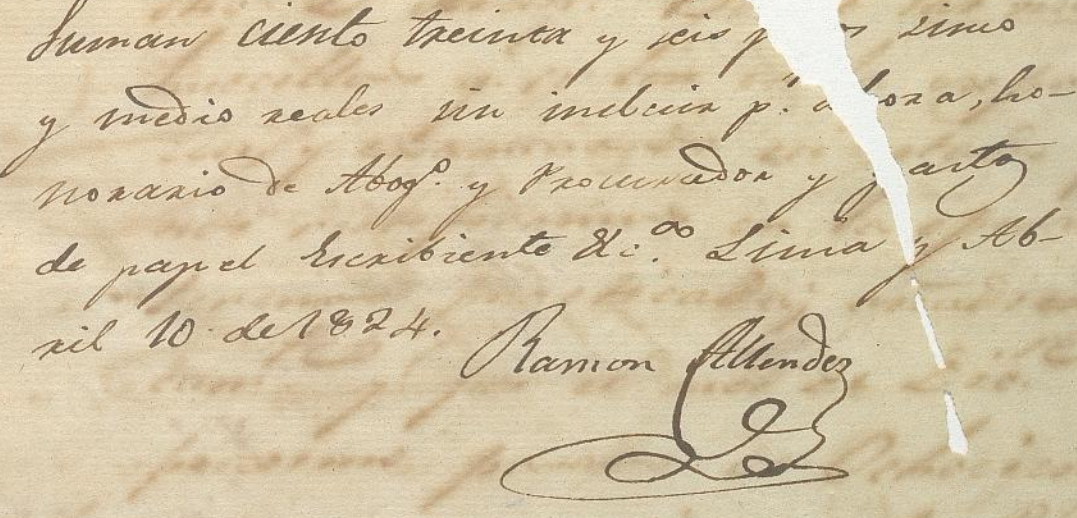 Suman ciento treinta y seis pesos sinco
y medio reales sin incluir p.ʳ ahora, ho-
norario de Abog.º y Procurador y gasto
de papel Escribiente &c.ª Lima y Ab-
ril 10 de 1824.
Ramon Allende